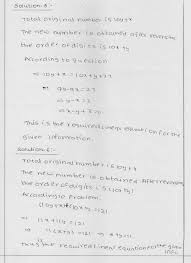 Solution 5-
Total original number is 10y+x
The new number is obtained after reversing
the order of digits is 10x+y
According to question
⇒ 10y+x = 10x+y+27
⇒ 9y-9x=27
⇒ y-x=3
x-y=-3
This is the required linear equation for the
given information.
Solution 6-
Total original number is 10y+x
The new number is obtained after reversing
the order of digits is (10x+y)
According problem.
(10y+x)+(10x+y)=121
⇒ 11x+11y=121
⇒ 11(x+y)=121 ⇒ x+y=11
Thus the required linear equation for the given